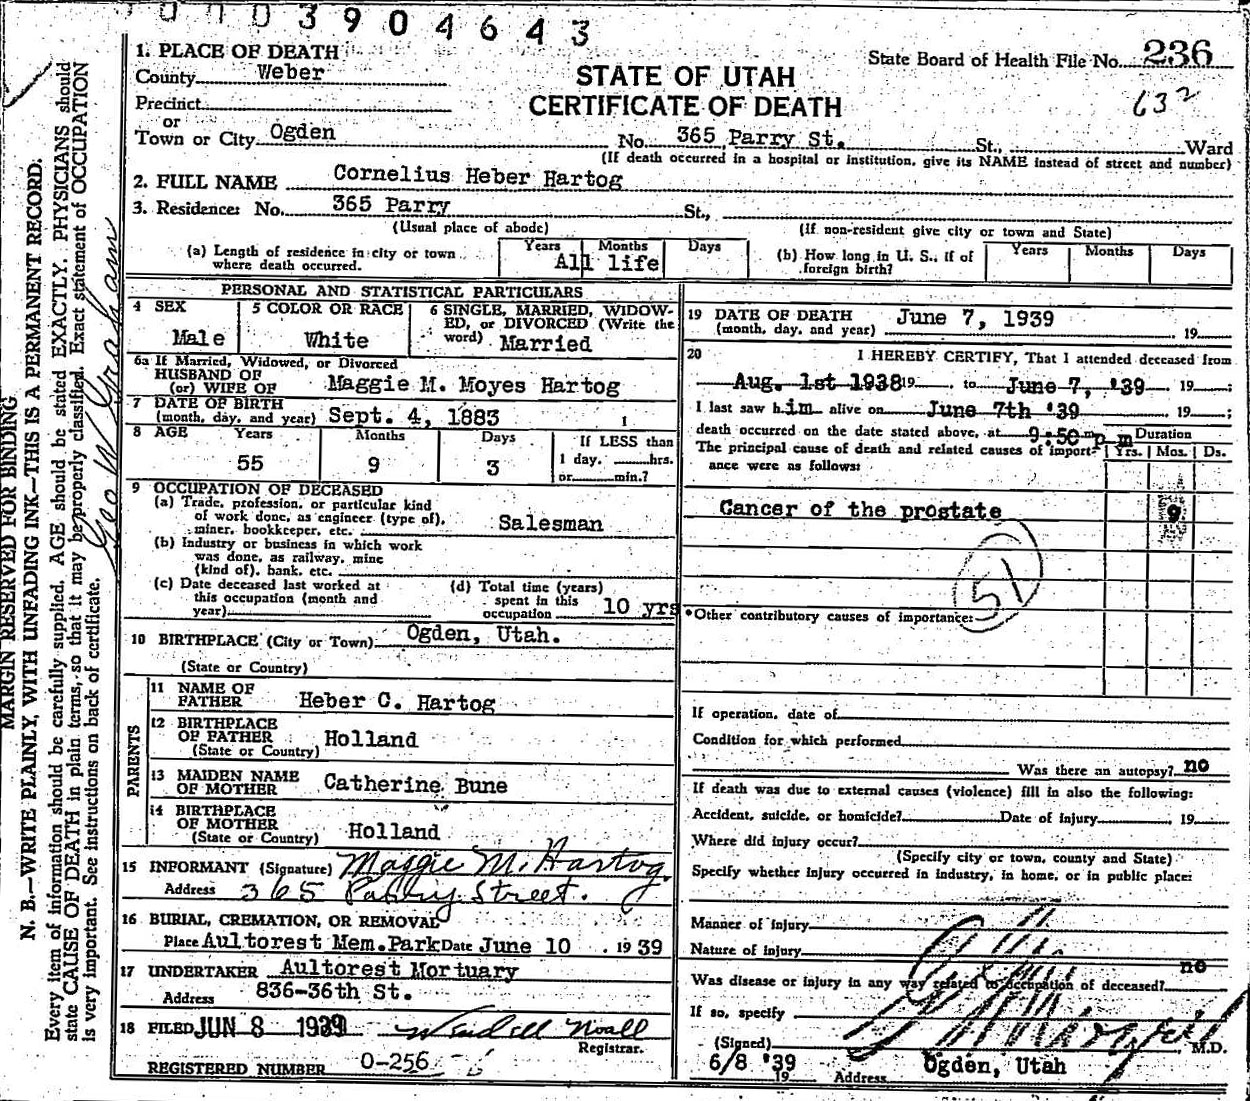 0003904643
1. PLACE OF DEATH
County Weber
Precinct
or
Town or City Ogden
STATE OF UTAH
CERTIFICATE OF DEATH
State Board of Health File No. 236
632
No. 365 Parry St. St., Ward
(If death occurred in a hospital or institution, give its NAME instead of street and number)
2. FULL NAME Cornelius Heber Hartog
3. Residence: No. 365 Parry St.,
(Usual place of abode) (If non-resident give city or town and State)
(a) Length of residence in city or town where death occurred. Years Months Days
All life
(b) How long in U. S., if of foreign birth? Years Months Days
PERSONAL AND STATISTICAL PARTICULARS
4 SEX
Male
5 COLOR OR RACE
White
6 SINGLE, MARRIED, WIDOW-
ED, or DIVORCED (Write the
word) Married
6a If Married, Widowed, or Divorced
HUSBAND OF
(or) WIFE OF Maggie M. Moyes Hartog
7 DATE OF BIRTH
(month, day, and year) Sept. 4, 1883
8 AGE Years Months Days If LESS than
55 9 3 1 day, hrs.
or min.?
9 OCCUPATION OF DECEASED
(a) Trade, profession, or particular kind
of work done, as engineer (type of),
miner, bookkeeper, etc. Salesman
(b) Industry or business in which work
was done, as railway, mine
(kind of), bank, etc.
(c) Date deceased last worked at
this occupation (month and
year)
(d) Total time (years)
spent in this
occupation 10 yrs
10 BIRTHPLACE (City or Town) Ogden, Utah.
(State or Country)
PARENTS
11 NAME OF
FATHER Heber C. Hartog
12 BIRTHPLACE
OF FATHER Holland
(State or Country)
13 MAIDEN NAME
OF MOTHER Catherine Bune
14 BIRTHPLACE
OF MOTHER
(State or Country) Holland
15 INFORMANT (Signature) Maggie M. Hartog.
Address 365 Parry Street.
16 BURIAL, CREMATION, OR REMOVAL
Place Aultorest Mem.Park Date June 10 1939
17 UNDERTAKER Aultorest Mortuary
Address 836-36th St.
18 FILED JUN 8 1939 Wendell Noall
Registrar.
REGISTERED NUMBER 0-256
19 DATE OF DEATH
(month, day, and year) June 7, 1939 19
20 I HEREBY CERTIFY, That I attended deceased from
Aug. 1st 1938 19 to June 7, '39 19 ;
I last saw him alive on June 7th '39 19 ;
death occurred on the date stated above, at 9:50 p m
The principal cause of death and related causes of import-
ance were as follows:
Duration
Yrs. Mos. Ds.
Cancer of the prostate 9
51
Other contributory causes of importance:
If operation, date of
Condition for which performed
Was there an autopsy? no
If death was due to external causes (violence) fill in also the following:
Accident, suicide, or homicide? Date of injury 19
Where did injury occur?
(Specify city or town, county and State)
Specify whether injury occurred in industry, in home, or in public place:
Manner of injury
Nature of injury
Was disease or injury in any way related to occupation of deceased? no
If so, specify
(Signed) M.D.
6/8 '39 19 Address Ogden, Utah
MARGIN RESERVED FOR BINDING
N. B.—WRITE PLAINLY, WITH UNFADING INK—THIS IS A PERMANENT RECORD.
Every item of information should be carefully supplied. AGE should be stated EXACTLY. PHYSICIANS should
state CAUSE OF DEATH in plain terms, so that it may be properly classified. Exact statement of OCCUPATION
is very important. See instructions on back of certificate.
Geo W Graham